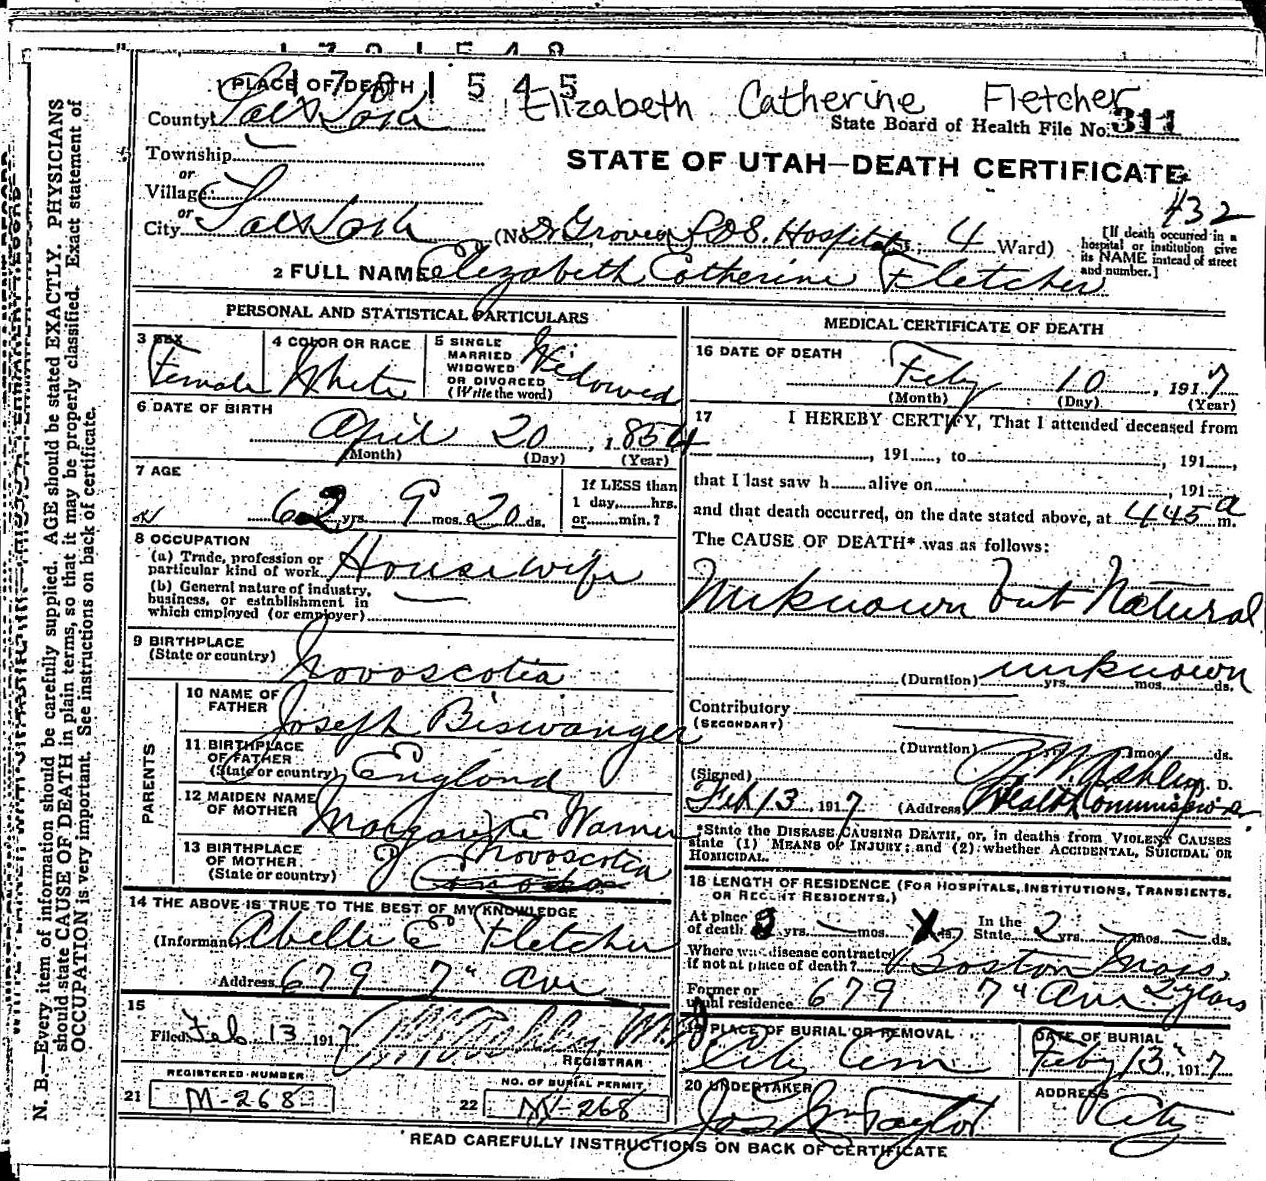 1701545
PLACE OF DEATH
Elizabeth Catherine Fletcher
County Salt Lake
State Board of Health File No. 311
Township
or
Village
STATE OF UTAH—DEATH CERTIFICATE
432
or
City Salt Lake (No. Dr Groves L.D.S. Hospital St. 4 Ward)
[If death occurred in a hospital or institution give its NAME instead of street and number.]
2 FULL NAME Elizabeth Catherine Fletcher
PERSONAL AND STATISTICAL PARTICULARS
3 SEX Female
4 COLOR OR RACE White
5 SINGLE MARRIED WIDOWED OR DIVORCED (Write the word) Widowed
6 DATE OF BIRTH
April 20, 1854
(Month) (Day) (Year)
7 AGE
62 yrs. 9 mos. 20 ds.
If LESS than 1 day, hrs. or min.?
8 OCCUPATION
(a) Trade, profession or particular kind of work Housewife
(b) General nature of industry, business, or establishment in which employed (or employer)
9 BIRTHPLACE
(State or country) Novoscotia
PARENTS
10 NAME OF FATHER Joseph Biswanger
11 BIRTHPLACE OF FATHER (State or country) England
12 MAIDEN NAME OF MOTHER Margaret E Warner
13 BIRTHPLACE OF MOTHER (State or country) Novoscotia
14 THE ABOVE IS TRUE TO THE BEST OF MY KNOWLEDGE
(Informant) Abelle E Fletcher
Address 679 7" Ave
15
Filed Feb 13 1917
REGISTRAR
REGISTERED NUMBER
21 M-268
NO. OF BURIAL PERMIT
22 M-268
MEDICAL CERTIFICATE OF DEATH
16 DATE OF DEATH
Feby 10, 1917
(Month) (Day) (Year)
17 I HEREBY CERTIFY, That I attended deceased from
, 191 , to , 191 ,
that I last saw h alive on , 191
and that death occurred, on the date stated above, at 445 a m.
The CAUSE OF DEATH* was as follows:
Unknown but Natural
(Duration) unknown yrs. mos. ds.
Contributory
(SECONDARY)
(Duration) yrs. mos. ds.
(Signed) M. D.
Feb 13 1917 (Address) Health Commissioner
*State the DISEASE CAUSING DEATH, or, in deaths from VIOLENT CAUSES state (1) MEANS OF INJURY; and (2) whether ACCIDENTAL, SUICIDAL OR HOMICIDAL.
18 LENGTH OF RESIDENCE (FOR HOSPITALS, INSTITUTIONS, TRANSIENTS, OR RECENT RESIDENTS.)
At place of death yrs. mos. ds. In the State 2 yrs. mos. ds.
Where was disease contracted if not at place of death? Boston Mass.
Former or usual residence 679 7" Ave 2 years
19 PLACE OF BURIAL OR REMOVAL City Cem
DATE OF BURIAL Feby 13", 1917
20 UNDERTAKER Jos Wm Taylor
ADDRESS City
READ CAREFULLY INSTRUCTIONS ON BACK OF CERTIFICATE
N. B.—Every item of information should be carefully supplied. AGE should be stated EXACTLY. PHYSICIANS
should state CAUSE OF DEATH in plain terms, so that it may be properly classified. Exact statement of
OCCUPATION is very important. See instructions on back of certificate.